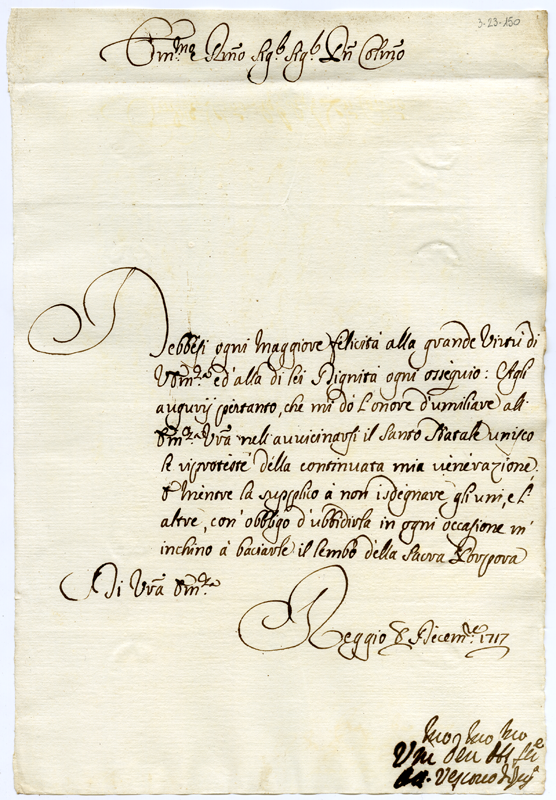 3-23-150
Em.mo Rmo Sig.r Sig.r Pñ Colmo
Debbesi ogni maggiore felicità alla grande Virtù di
V Em.za ed'alla di lei Dignità ogni ossequio: Agli
augurij pertanto, che mi dò l'onore d'umiliare all'
Em.za Vra nell'avvicinarsi il Santo Natale unisco
le riproteste della continuata mia venerazione,
E mentre la supplico à non isdegnare gli uni, e l'
altre, con obbligo d'ubbidirla in ogni occasione m'
inchino à baciarle il lembo della Sacra Porpora
Di Vra Em.za
Reggio 8 Decem.re 1717